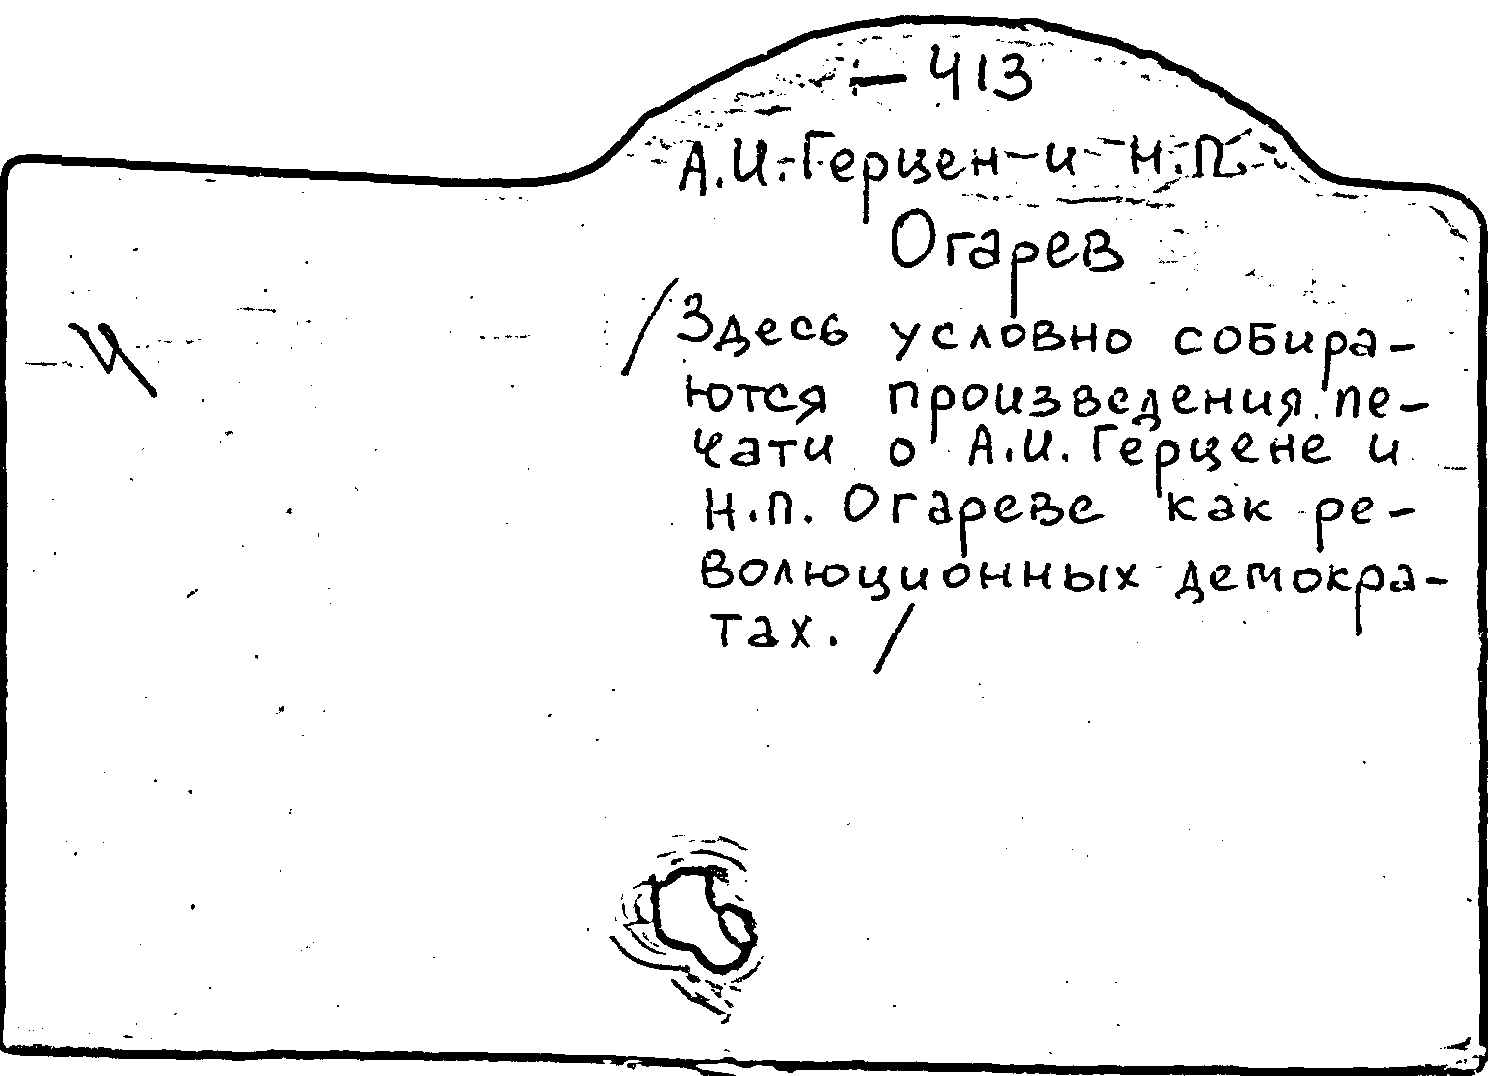 — 413
А.И. Герцен и Н.П.
Огарев
/Здесь условно собира-
ются произведения пе-
чати о А.И. Герцене и
Н.П. Огареве как ре-
волюционных демокра-
тах. /